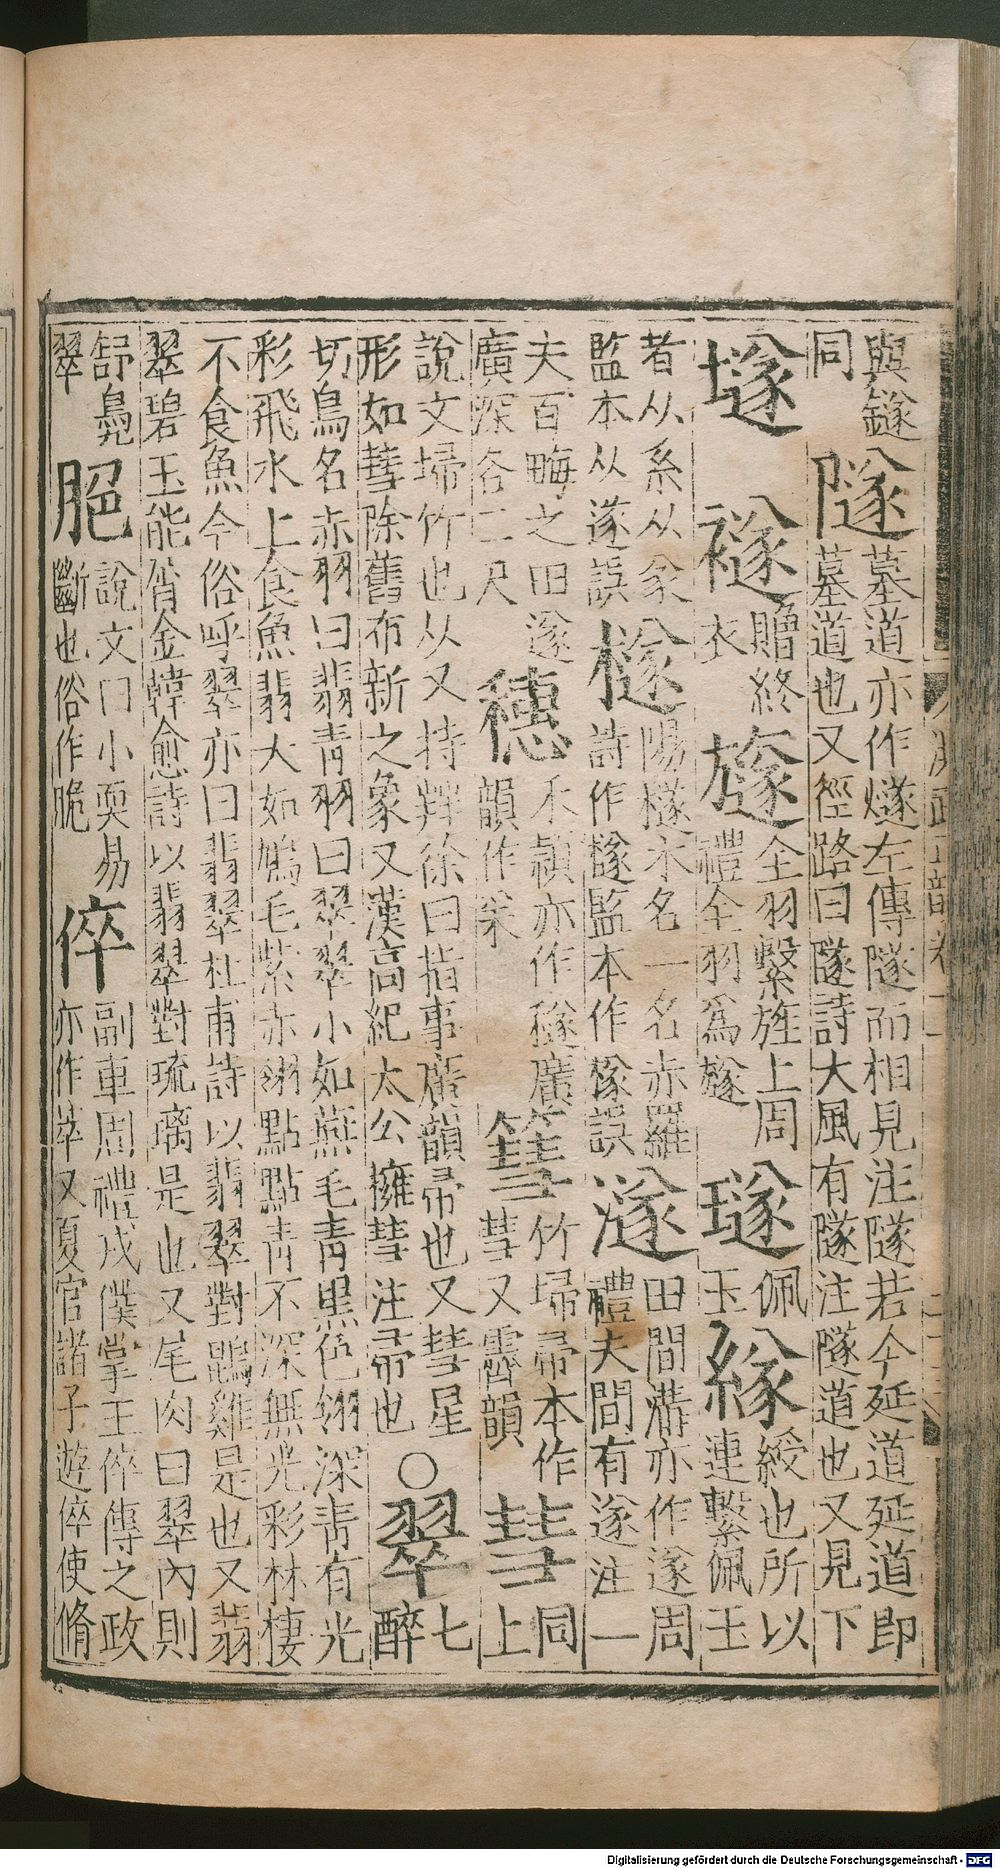 與鐩
同
隧
墓道亦作㸂左傳隧而相見注隧若今延道延道即
墓道也又徑路曰隧詩大風有隧注隧道也又見下
𡑞
襚
贈終
衣
旞
全羽繫旌上周
禮全羽爲旞
璲
佩
玉
綬也所以
連繫佩玉
者从系从㒸
監本从遂誤
檖
陽檖木名一名赤羅
詩作檖監本作㥞誤
澻
田間溝亦作遂周
禮夫間有遂注一
夫百畮之田遂
廣深各二尺
穗
禾穎亦作穟廣
韻作采
篲
竹埽帚本作
彗又霽韻
彗
同
上
說文埽竹也从又持㽅徐曰指事廣韻帚也又彗星
形如彗除舊布新之象又漢高紀太公擁彗注帚也
○
翠
七
醉
切鳥名赤羽曰翡青羽曰翠翠小如燕毛青黑色翎深青有光
彩飛水上食魚翡大如鳩毛紫赤翎點點青不深無光彩林棲
不食魚今俗呼翠亦曰翡翠杜甫詩以翡翠對鵾雞是也又翡
翠碧玉能屑金韓愈詩以翡翠對琉璃是也又尾肉曰翠內則
舒鳧
翠
脃
說文曰小耎易
斷也俗作脆
倅
副車周禮戎僕掌王倅傳之政
亦作萃又夏官諸子遊倅使脩
Digitalisierung gefördert durch die Deutsche Forschungsgemeinschaft - DFG